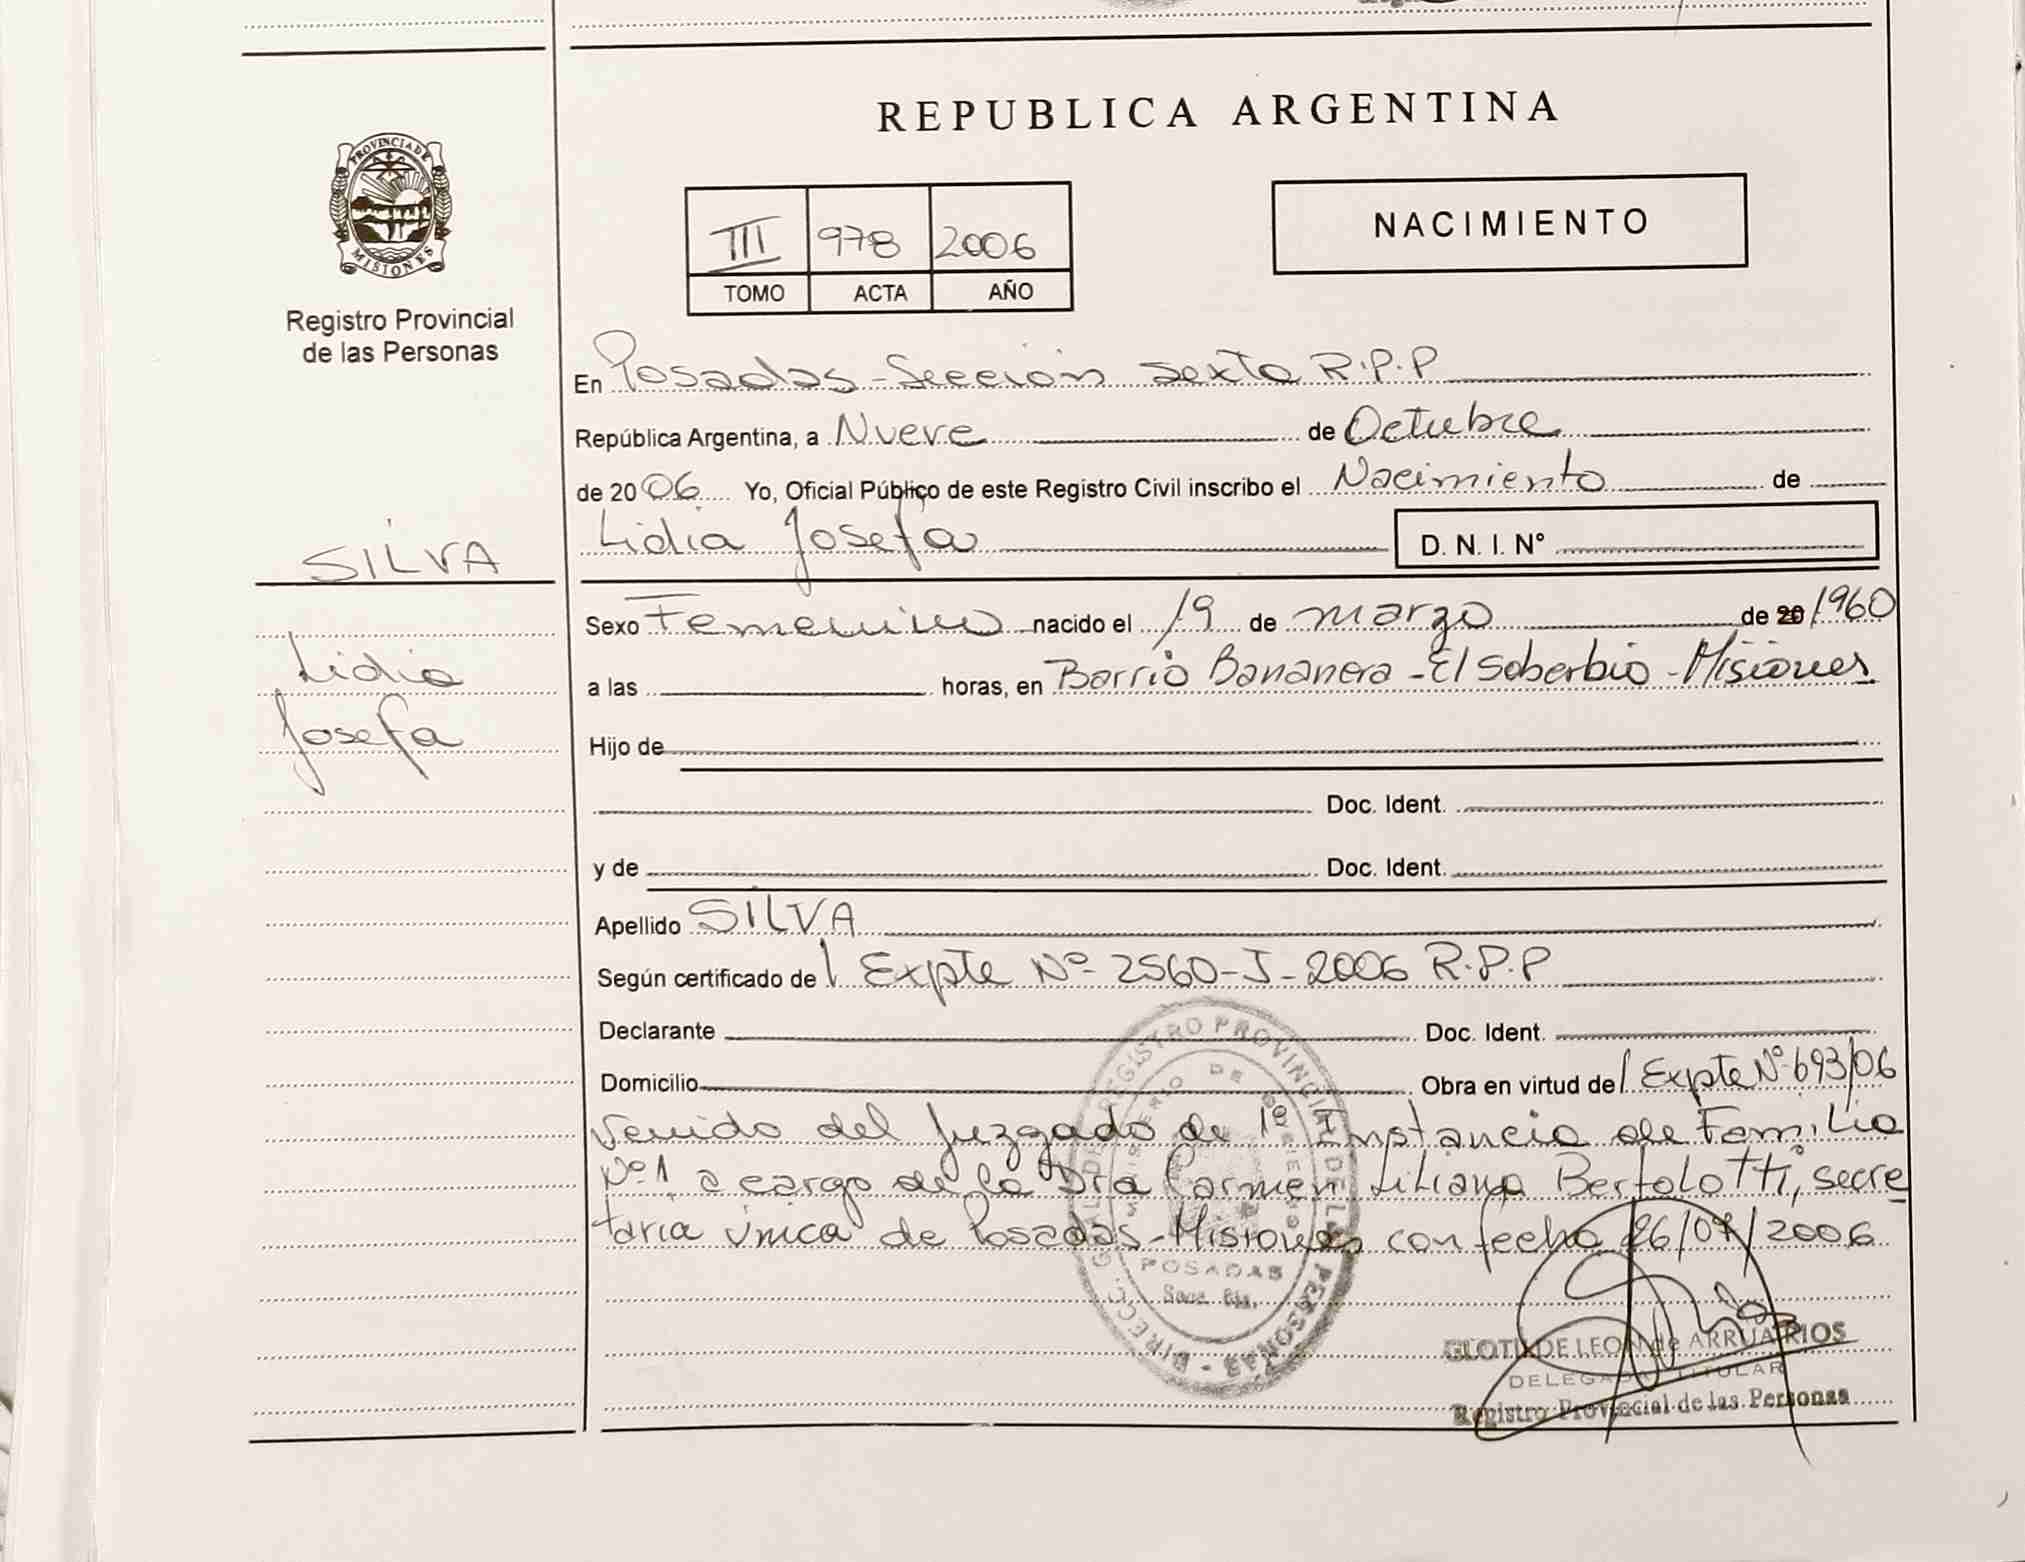 REPUBLICA ARGENTINA
PROVINCIA DE
MISIONES
Registro Provincial
de las Personas
III 978 2006
TOMO ACTA AÑO
NACIMIENTO
En Posadas - Sección sexta R.P.P
República Argentina, a Nueve de Octubre
de 2006 Yo, Oficial Público de este Registro Civil inscribo el Nacimiento de
Lidia Josefa D. N. I. N°
SILVA
Lidia
Josefa
Sexo Femenino nacido el 19 de marzo de 20 1960
a las horas, en Barrio Bananera - El Soberbio - Misiones
Hijo de
Doc. Ident.
y de Doc. Ident.
Apellido SILVA
Según certificado de / Expte Nº 2560-J-2006 R.P.P
Declarante Doc. Ident.
Domicilio Obra en virtud de / Expte Nº 693/06
Venido del Juzgado de 1ª Instancia de Familia
Nº 1 a cargo de la Dra Carmen Liliana Bertolotti, secre
taría única de Posadas - Misiones con fecha 26/07/2006
DIRECC. GRAL DE REGISTRO PROVINCIAL DE LAS PERSONAS
MINISTERIO DE GOBIERNO
POSADAS
CLOTILDE LEON de ARRUA RIOS
DELEGADA TITULAR
Registro Provincial de las Personas